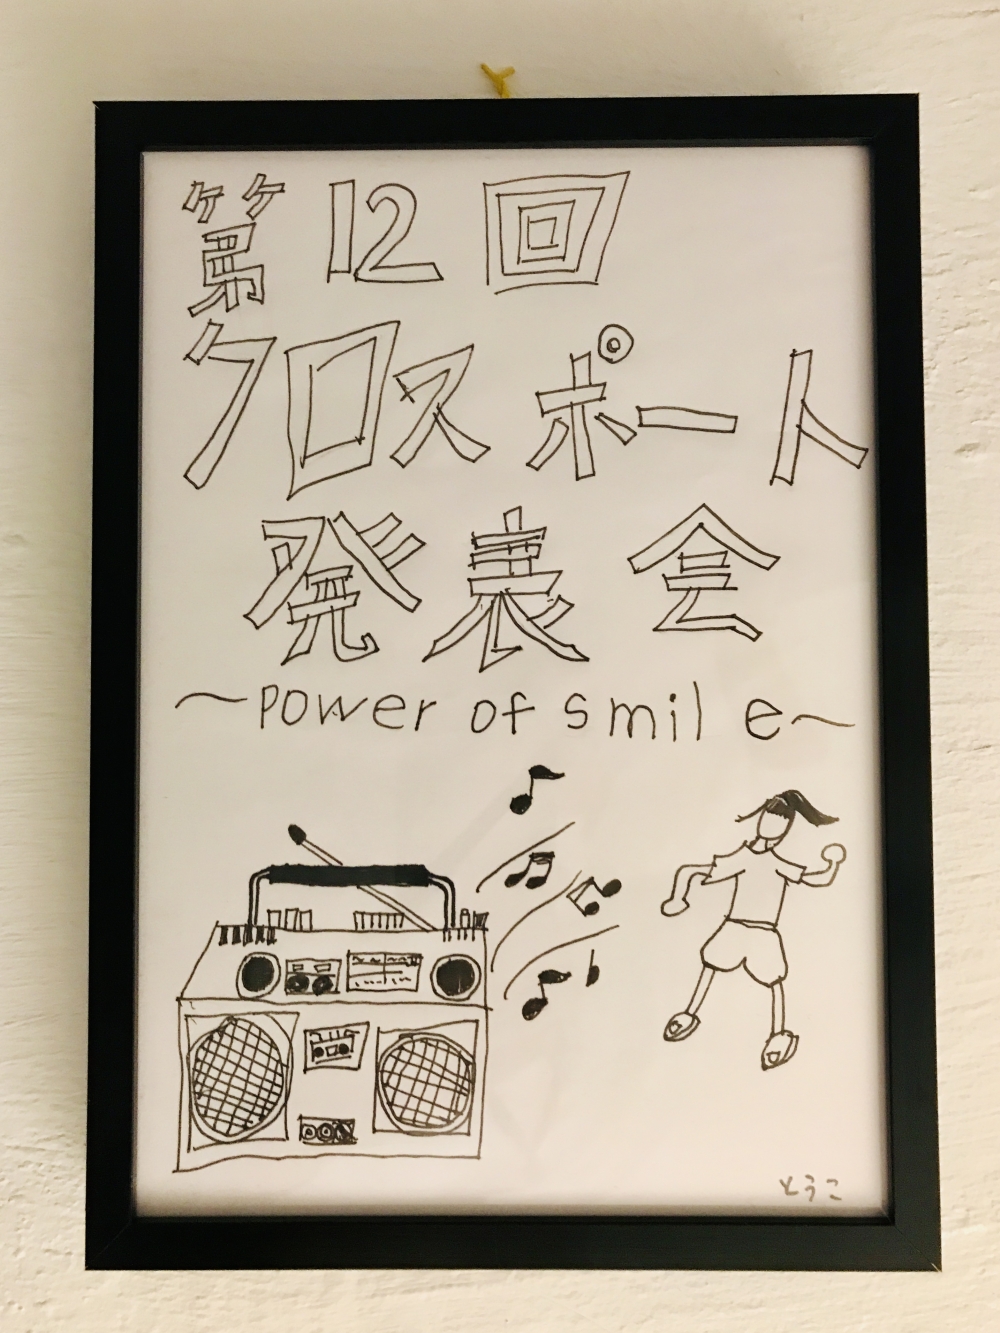 第12回
クロスポート
発表会
～power of smile～
とうこ